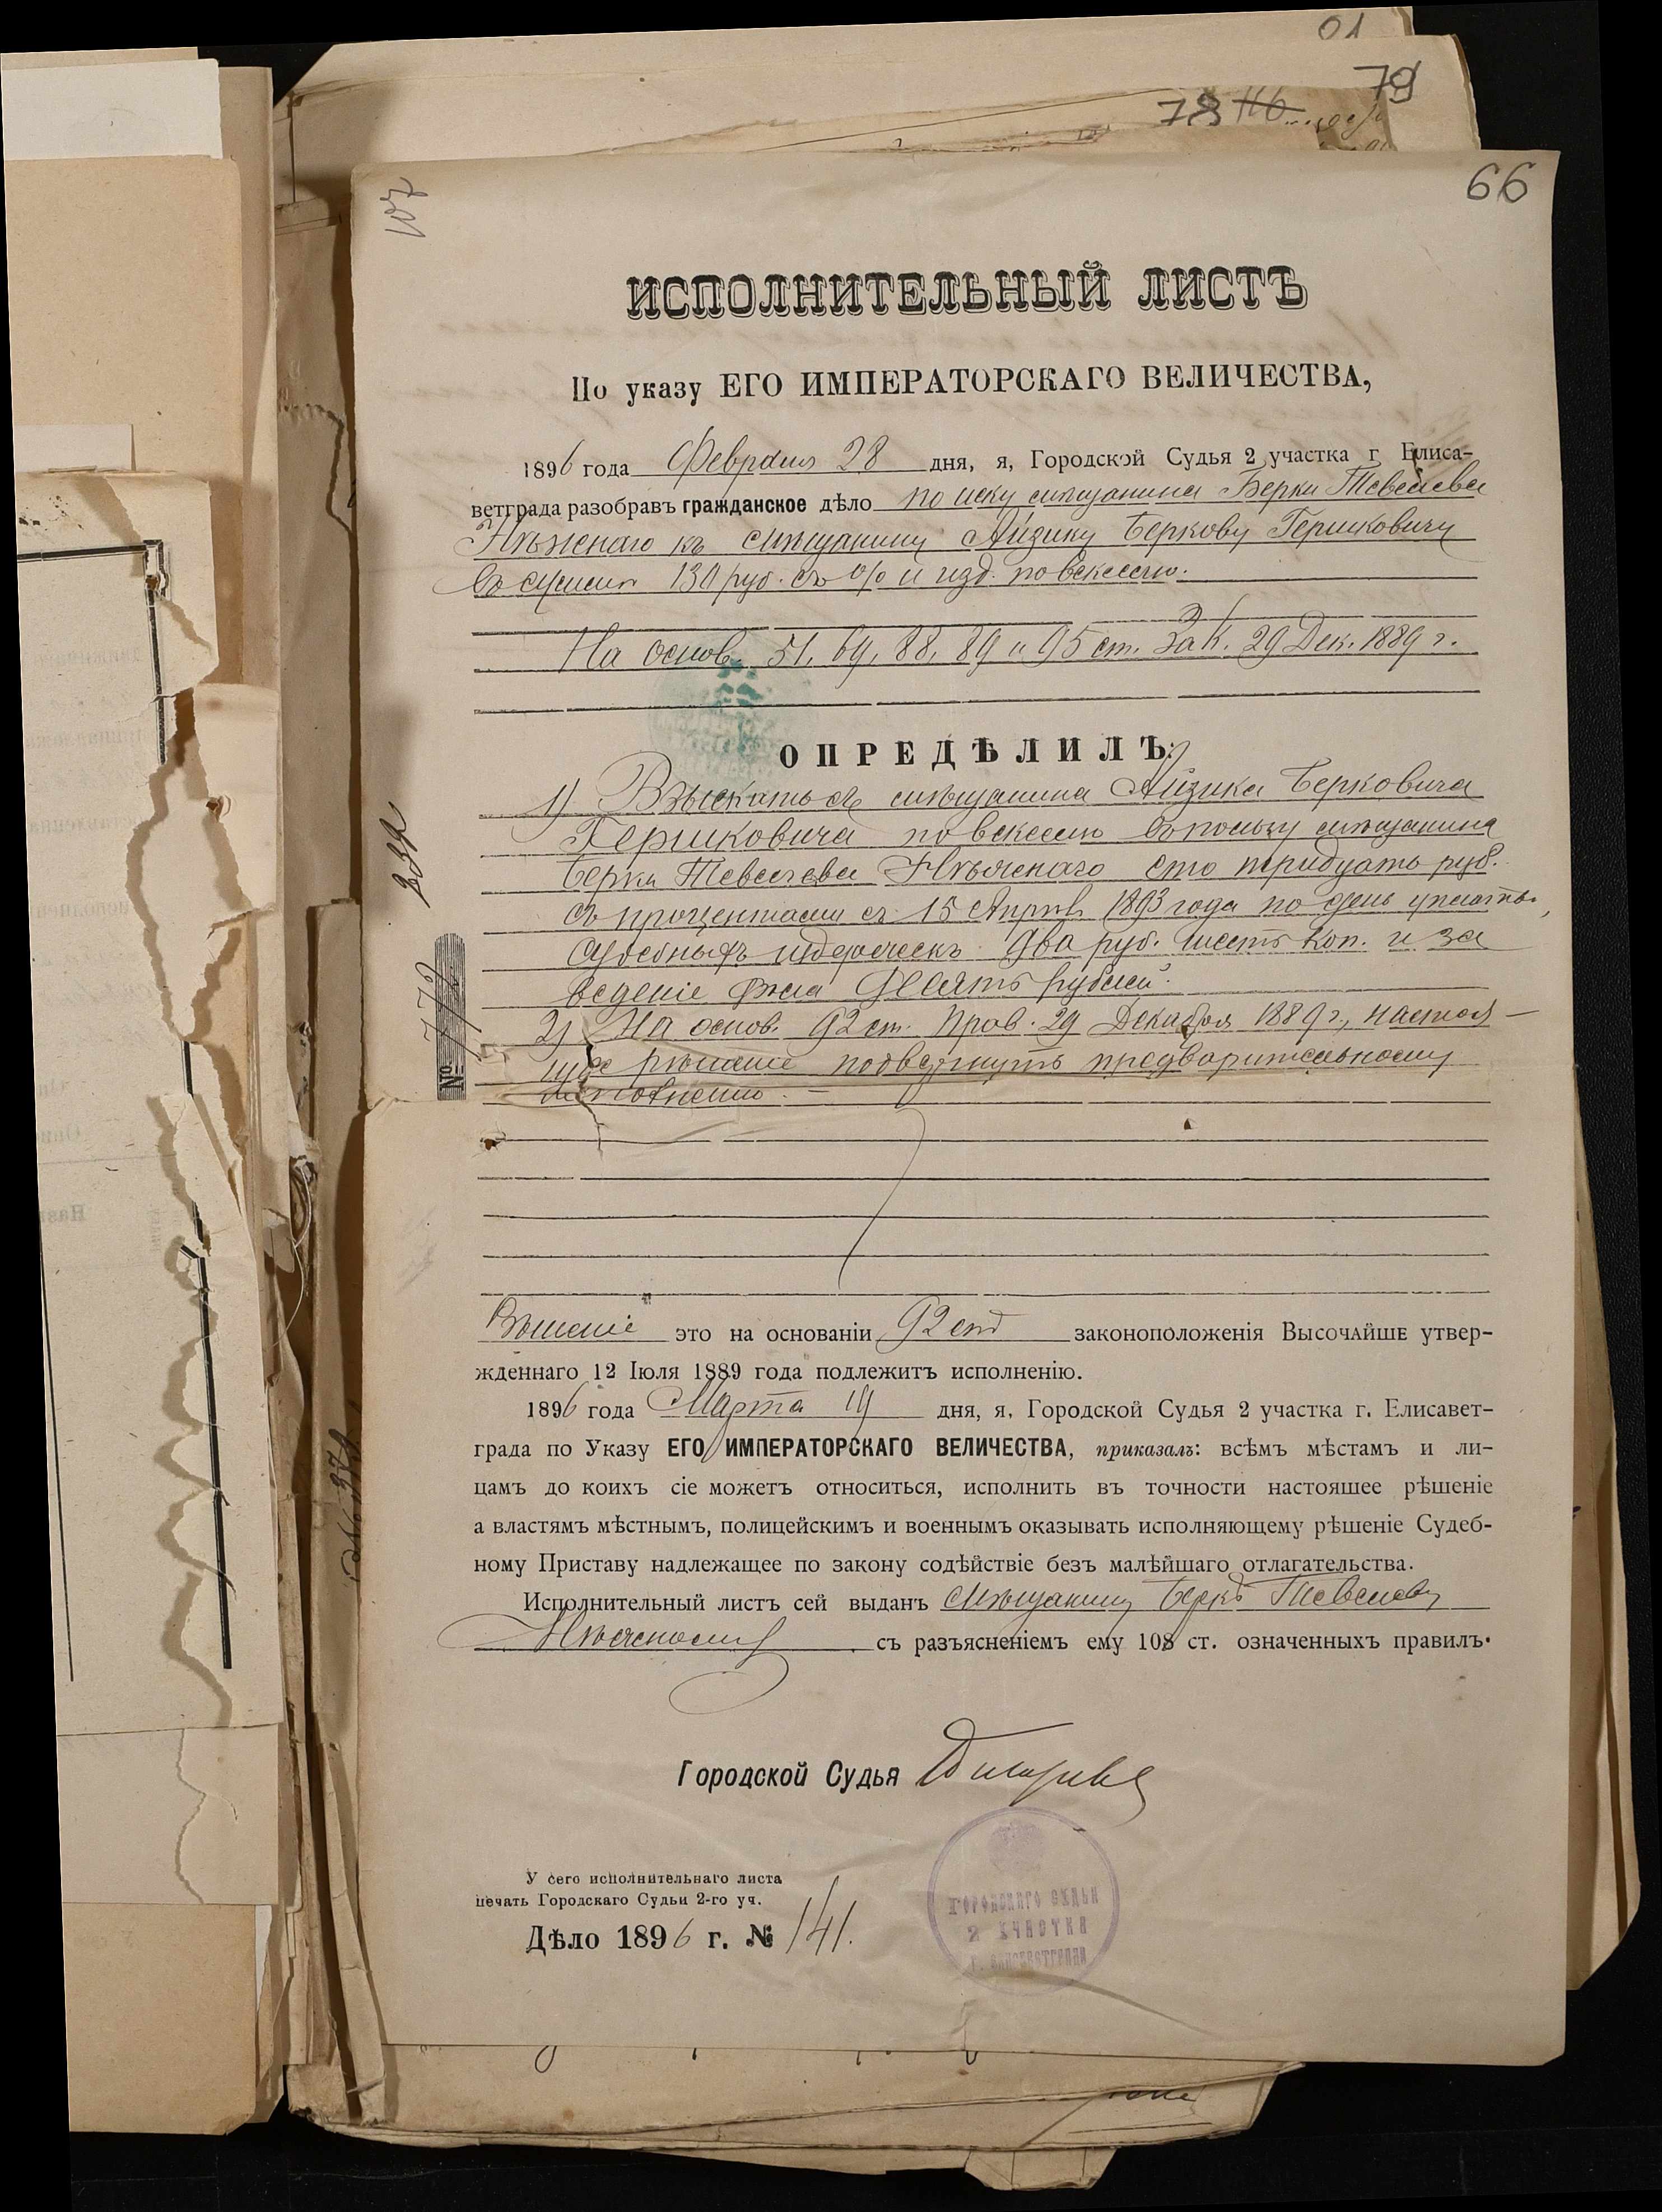 01
79
78 116
66
107
ИСПОЛНИТЕЛЬНЫЙ ЛИСТЪ
По указу ЕГО ИМПЕРАТОРСКАГО ВЕЛИЧЕСТВА,
1896 года Февраля 28 дня, я, Городской Судья 2 участка г Елиса-
ветграда разобравъ гражданское дѣло по иску мѣщанина Берки Тевелева
Нѣжнаго къ мѣщанину Айзику Беркову Гершковичу
въ суммѣ 130 руб. съ % и изд. по векселю.
На основ. 51, 69, 88, 89 и 95 ст. Зак. 29 Дек. 1889 г.
ОПРЕДѢЛИЛЪ:
1) Взыскать съ мѣщанина Айзика Берковича
Гершковича по векселю въ пользу мѣщанина
Берки Тевелева сто тридцать руб.
съ процентами съ 15 Апрѣл. 1893 года по день уплаты,
судебныхъ издержекъ два руб. шесть коп. и за
веденіе дѣла десять рублей.
2) На основ. 92 ст. Прав. 29 Декабря 1889 г., настоя-
щее рѣшеніе подвергнуть предварительному
исполненію. —
№ 772
Рѣшеніе это на основаніи 92 ст законоположенія ВЫСОЧАЙШЕ утвер-
жденнаго 12 Іюля 1889 года подлежитъ исполненію.
1896 года Марта 19 дня, я, Городской Судья 2 участка г. Елисавет-
града по Указу ЕГО ИМПЕРАТОРСКАГО ВЕЛИЧЕСТВА, приказалъ: всѣмъ мѣстамъ и ли-
цамъ до коихъ сіе можетъ относиться, исполнить въ точности настоящее рѣшеніе
а властямъ мѣстнымъ, полицейскимъ и военнымъ оказывать исполняющему рѣшеніе Судеб-
ному Приставу надлежащее по закону содѣйствіе безъ малѣйшаго отлагательства.
Исполнительный листъ сей выданъ мѣщанину Беркѣ Тевелеву
съ разъясненіемъ ему 108 ст. означенныхъ правилъ.
Городской Судья
У сего исполнительнаго листа
печать Городскаго Судьи 2-го уч.
Дѣло 1896 г. № 141.
ГОРОДСКАГО СУДЬИ
2 УЧАСТКА
Г. ЕЛИСАВЕТГРАДА